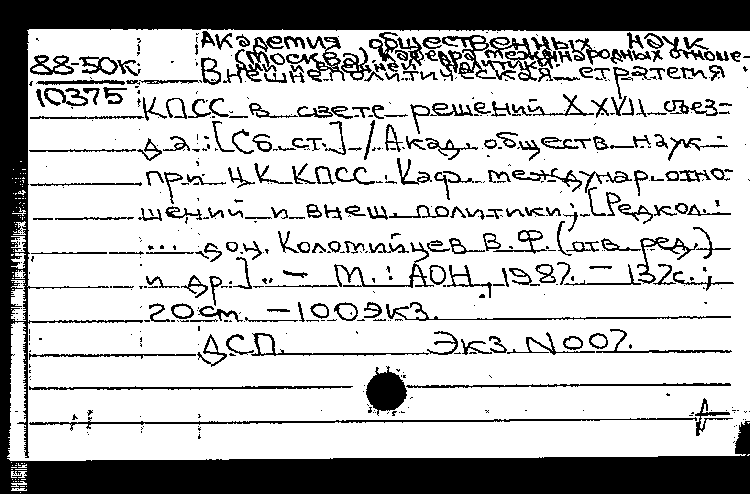 Академия общественных наук
(Москва). Кафедра международных отноше-
ний и внешней политики.
88-50к Внешнеполитическая стратегия
10375 КПСС в свете решений XXVII съез-
да : [Сб. ст.] / Акад. обществ. наук
при ЦК КПСС. Каф. междунар. отно-
шений и внеш. политики; [Редкол.:
... доц. Коломийцев В.Ф. (отв. ред.)
и др.]. – М.: АОН, 1987. – 137с.;
20см. – 100экз.
ДСП. Экз. N007.